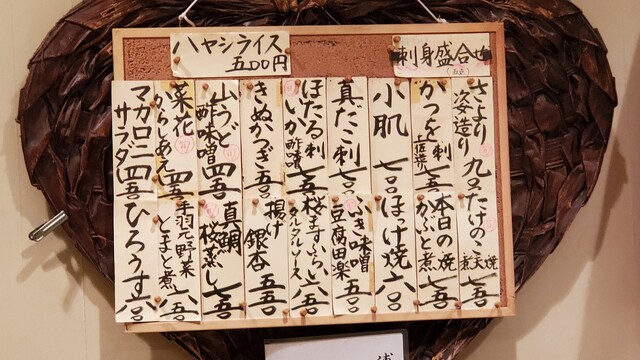 ハヤシライス
五〇〇円
刺身盛合せ
(五点)
さより
姿造り
旬
かつを刺
土佐造り
七五〇
小肌
七〇〇
真たこ刺
七〇〇
ほたる
いか
刺
酢味噌
七五〇
きぬかつぎ
山うど
酢味噌
旬
四五〇
菜花
からしあえ
旬
四五〇
マカロニ
サラダ
四五〇
たけのこ
煮天焼
七五〇
本日の焼
かぶと煮
七五〇
ほっけ焼
六〇〇
ふき味噌
豆腐田楽
五〇〇
桜ますふらい
タルタルソース
六五〇
揚げ
銀杏
五五〇
真鯛
桜蒸し
七五〇
手羽元野菜
とまと煮
六五〇
ひろうす
六〇〇